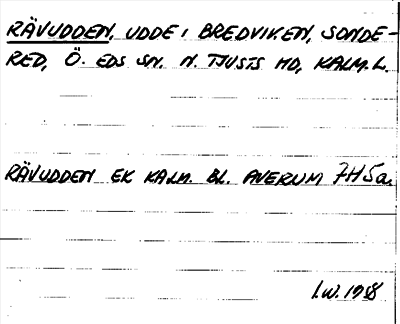 RÄVUDDEN, UDDE I BREDVIKEN, SONDE-
RED, Ö. EDS SN. N. TJUSTS HD, KALM. L.
RÄVUDDEN EK KALM. BL. AVERUM 7H5a.
I.W. 1958